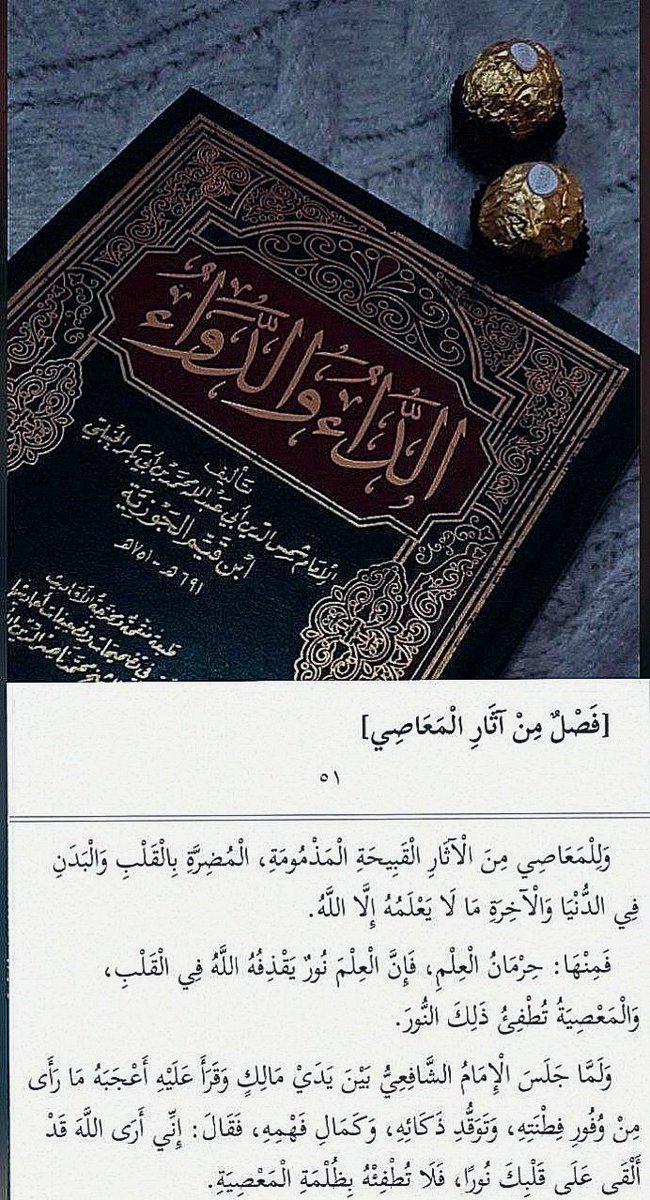 الدَّاءُ وَالدَّوَاءُ
تأليف
الإمام شمس الدين أبي عبد الله محمد بن أبي بكر الحنبلي
ابن قيم الجوزية
٦٩١هـ - ٧٥١هـ
[فَصْلٌ مِنْ آثَارِ الْمَعَاصِي]
٥١
وَلِلْمَعَاصِي مِنَ الْآثَارِ الْقَبِيحَةِ الْمَذْمُومَةِ، الْمُضِرَّةِ بِالْقَلْبِ وَالْبَدَنِ
فِي الدُّنْيَا وَالْآخِرَةِ مَا لَا يَعْلَمُهُ إِلَّا اللَّهُ.
فَمِنْهَا: حِرْمَانُ الْعِلْمِ، فَإِنَّ الْعِلْمَ نُورٌ يَقْذِفُهُ اللَّهُ فِي الْقَلْبِ،
وَالْمَعْصِيَةُ تُطْفِئُ ذَلِكَ النُّورَ.
وَلَمَّا جَلَسَ الْإِمَامُ الشَّافِعِيُّ بَيْنَ يَدَيْ مَالِكٍ وَقَرَأَ عَلَيْهِ أَعْجَبَهُ مَا رَأَى
مِنْ وُفُورِ فِطْنَتِهِ، وَتَوَقُّدِ ذَكَائِهِ، وَكَمَالِ فَهْمِهِ، فَقَالَ: إِنِّي أَرَى اللَّهَ قَدْ
أَلْقَى عَلَى قَلْبِكَ نُورًا، فَلَا تُطْفِئْهُ بِظُلْمَةِ الْمَعْصِيَةِ.